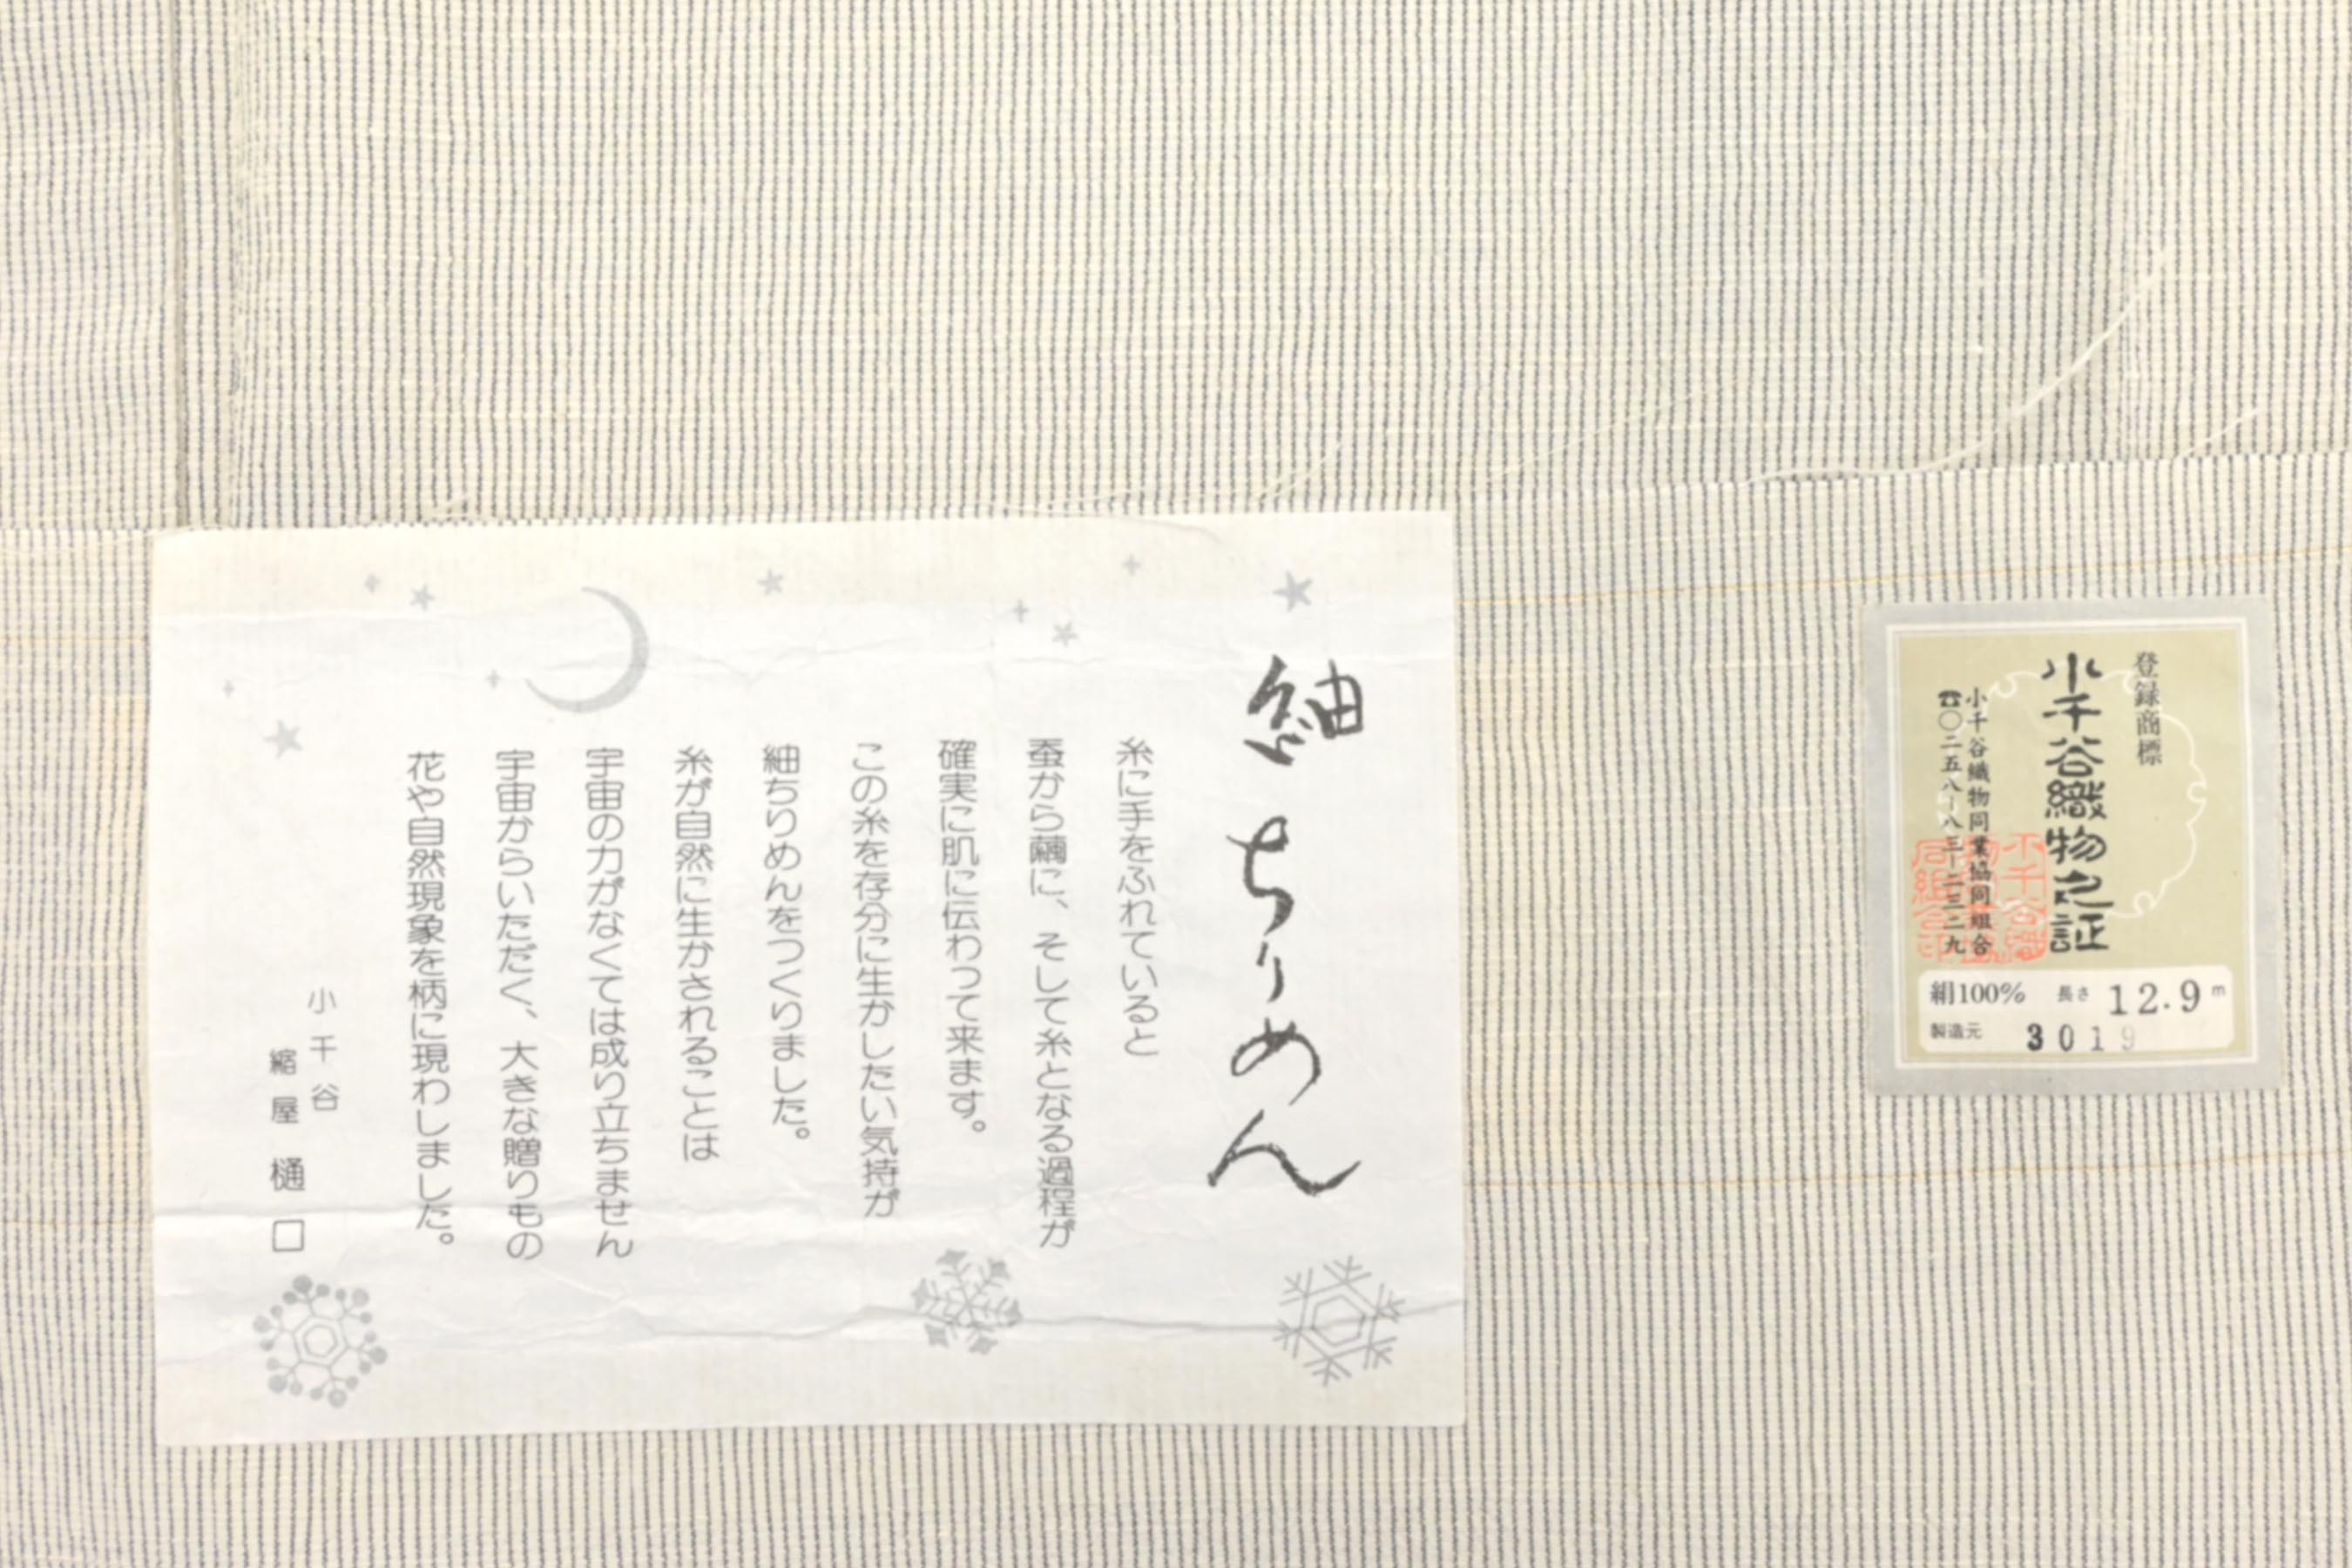 紬ちりめん
糸に手をふれていると
蚕から繭に、そして糸となる過程が
確実に肌に伝わって来ます。
この糸を存分に生かしたい気持が
紬ちりめんをつくりました。
糸が自然に生かされることは
宇宙の力がなくては成り立ちません
宇宙からいただく、大きな贈りもの
花や自然現象を柄に現わしました。
小千谷
縮屋 樋口
登録商標
小千谷織物之証
小千谷織物同業協同組合
☎〇二五八-八三-二三二九
絹100% 長さ 12.9m
製造元 3019